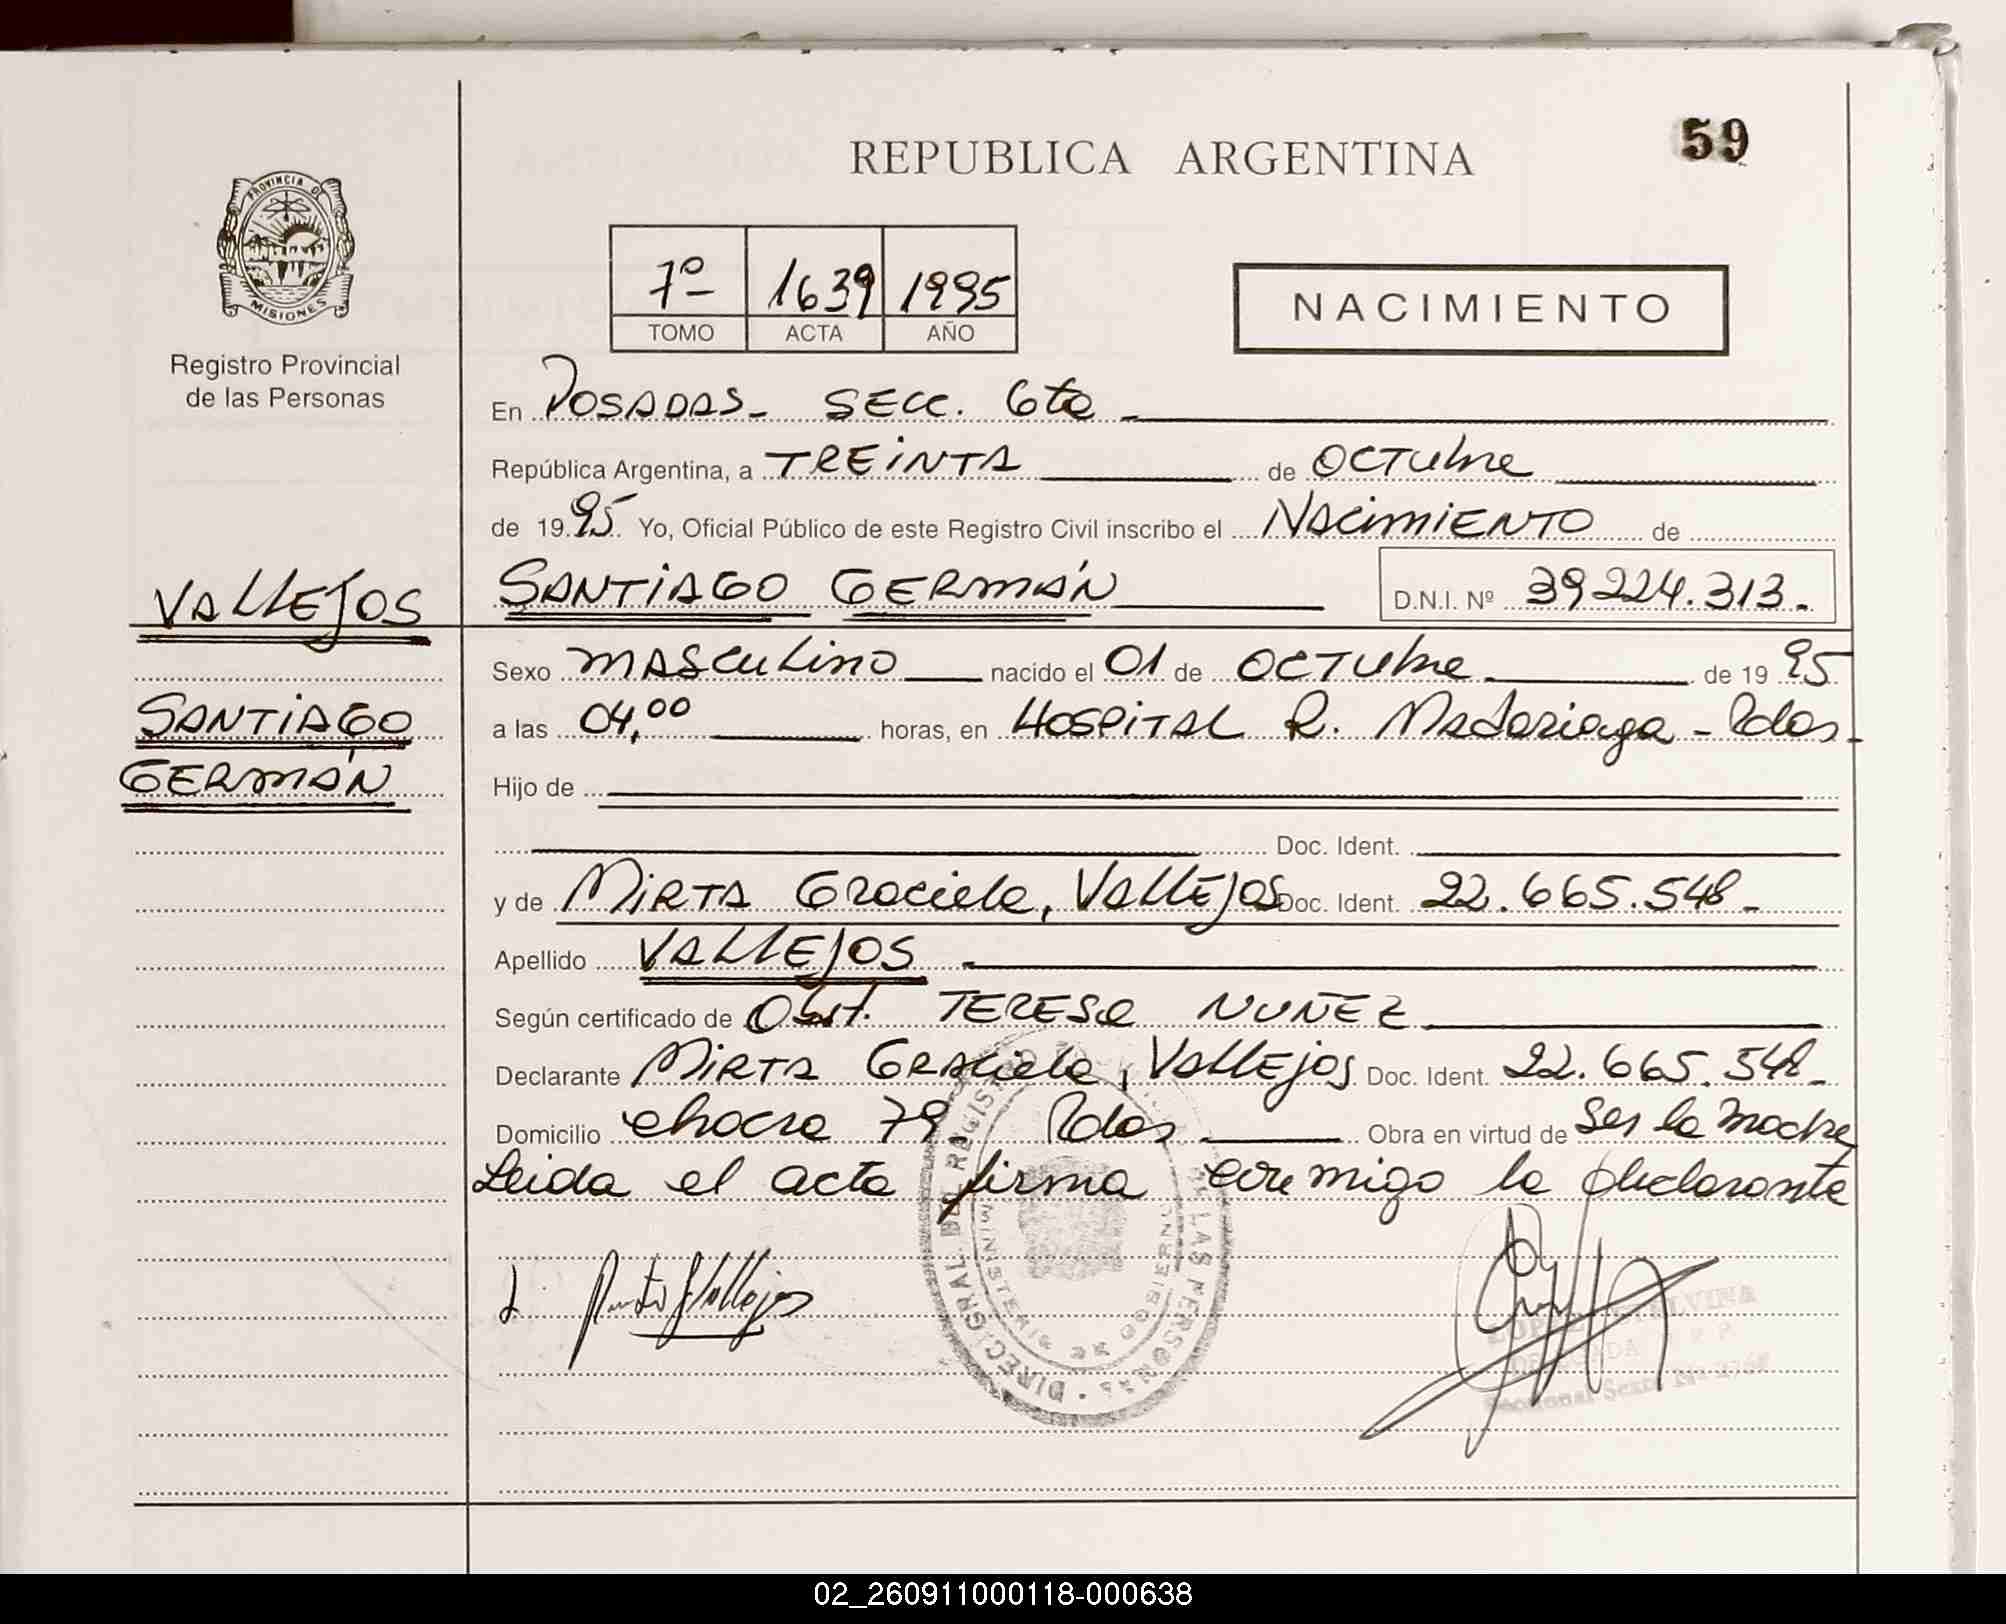 59
REPUBLICA ARGENTINA
PROVINCIA DE
MISIONES
Registro Provincial
de las Personas
7º 1639 1995
TOMO ACTA AÑO
NACIMIENTO
En POSADAS - SECC. 6ta -
República Argentina, a TREINTA de OCTUbre
de 1995 Yo, Oficial Público de este Registro Civil inscribo el NACIMIENTO de
SANTIAGO GERMÁN D.N.I. Nº 39.224.313.-
VALLEJOS
SANTIAGO
GERMÁN
Sexo MASCULINO nacido el 01 de OCTUbre de 1995
a las 04,00 horas, en HOSPITAL R. Madariaga - Pdas.-
Hijo de
Doc. Ident.
y de MIRTA Graciela, VALLEJOS Doc. Ident. 22.665.548 -
Apellido VALLEJOS -
Según certificado de Obst. TERESA NUÑEZ
Declarante MIRTA GRAciela, VALLEjOS Doc. Ident. 22.665.548 -
Domicilio chacra 79 Pdas Obra en virtud de ser la madre
Leida el acta firma conmigo la declarante
DIREC. GRAL. DEL REGISTRO DE LAS PERSONAS
MINISTERIO DE GOBIERNO
Seccional Sexta Nº
02_260911000118-000638